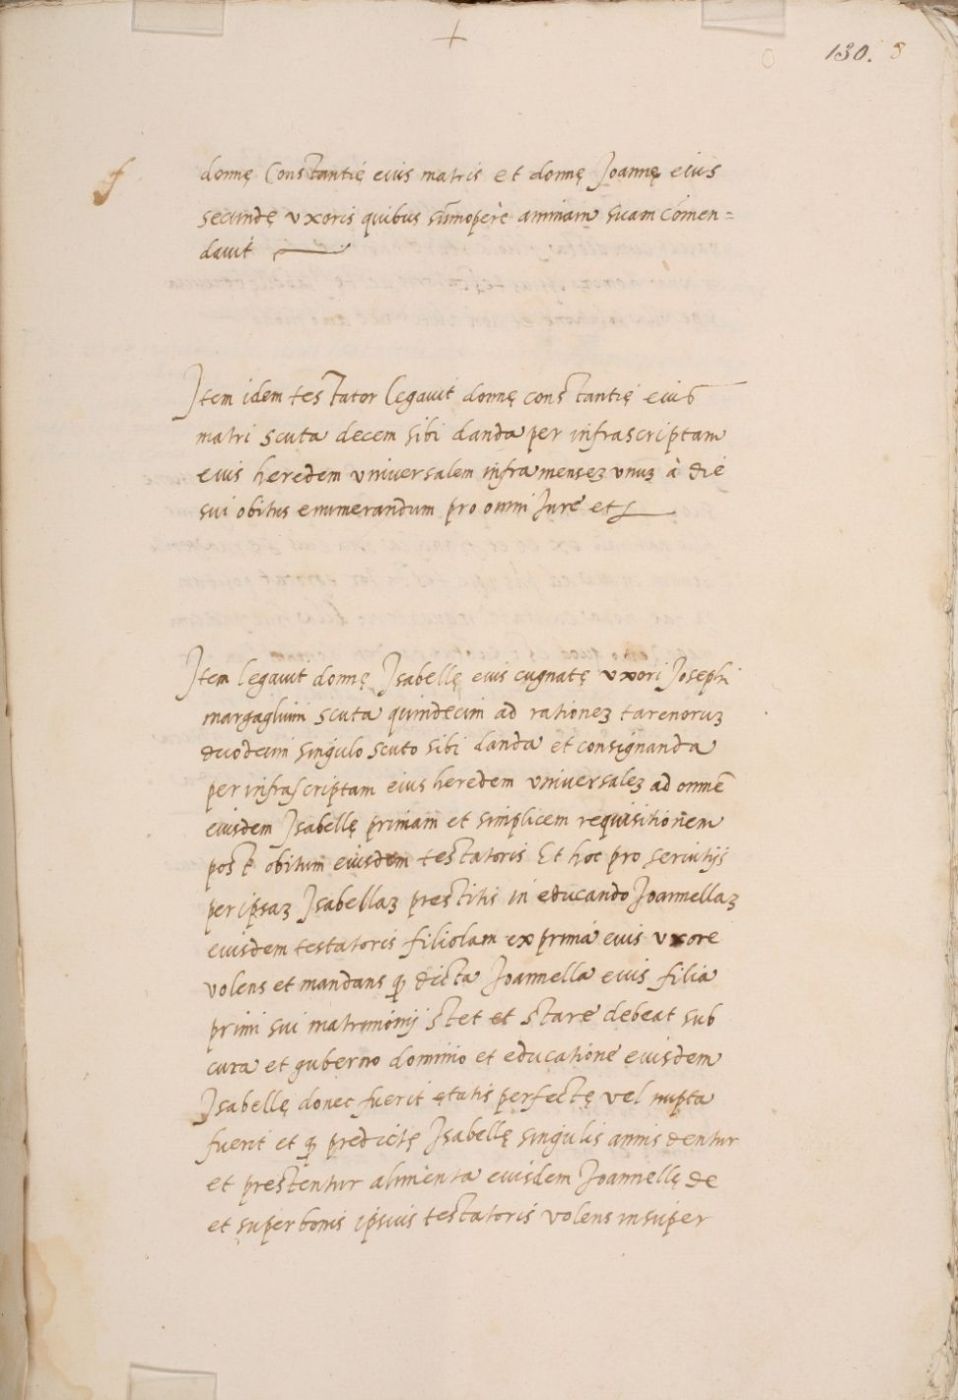 +
130. 8
f
donnę Constantię eius matris et donnę Joannę eius
secundę uxoris quibus sūmoperè animam suam cōmen=
dauit
Item idem testator legauit donnę constantię eius
matri scuta decem sibi danda per infrascriptam
eius heredem vniuersalem infra mensez vnuz à die
sui obitus enumerandum pro omni Jure et
Item legauit donnę Isabellę eius cugnatę vxori Josephi
margagliuni scuta quindecim ad rationez tarenoruz
duodecim singulo scuto sibi danda et consignanda
per infrascriptam eius heredem vniuersalez ad omnē
eiusdem Isabellę primam et simplicem requisitionem
post obitum eiusdem testatoris Et hoc pro seruitijs
per ipsaz Isabellaz prestitis in educando Joannellaz
eiusdem testatoris filiolam ex prima eius vxore
volens et mandans ꝙ dicta Joannella eius filia
primi sui matrimonij stet et stare debeat sub
cura et guberno dominio et educatione eiusdem
Isabellę donec fuerit ętatis perfectę vel nupta
fuerit et ꝙ predictę Isabellę singulis annis dentur
et prestentur alimenta eiusdem Joannellę de
et super bonis ipsius testatoris volens insuper